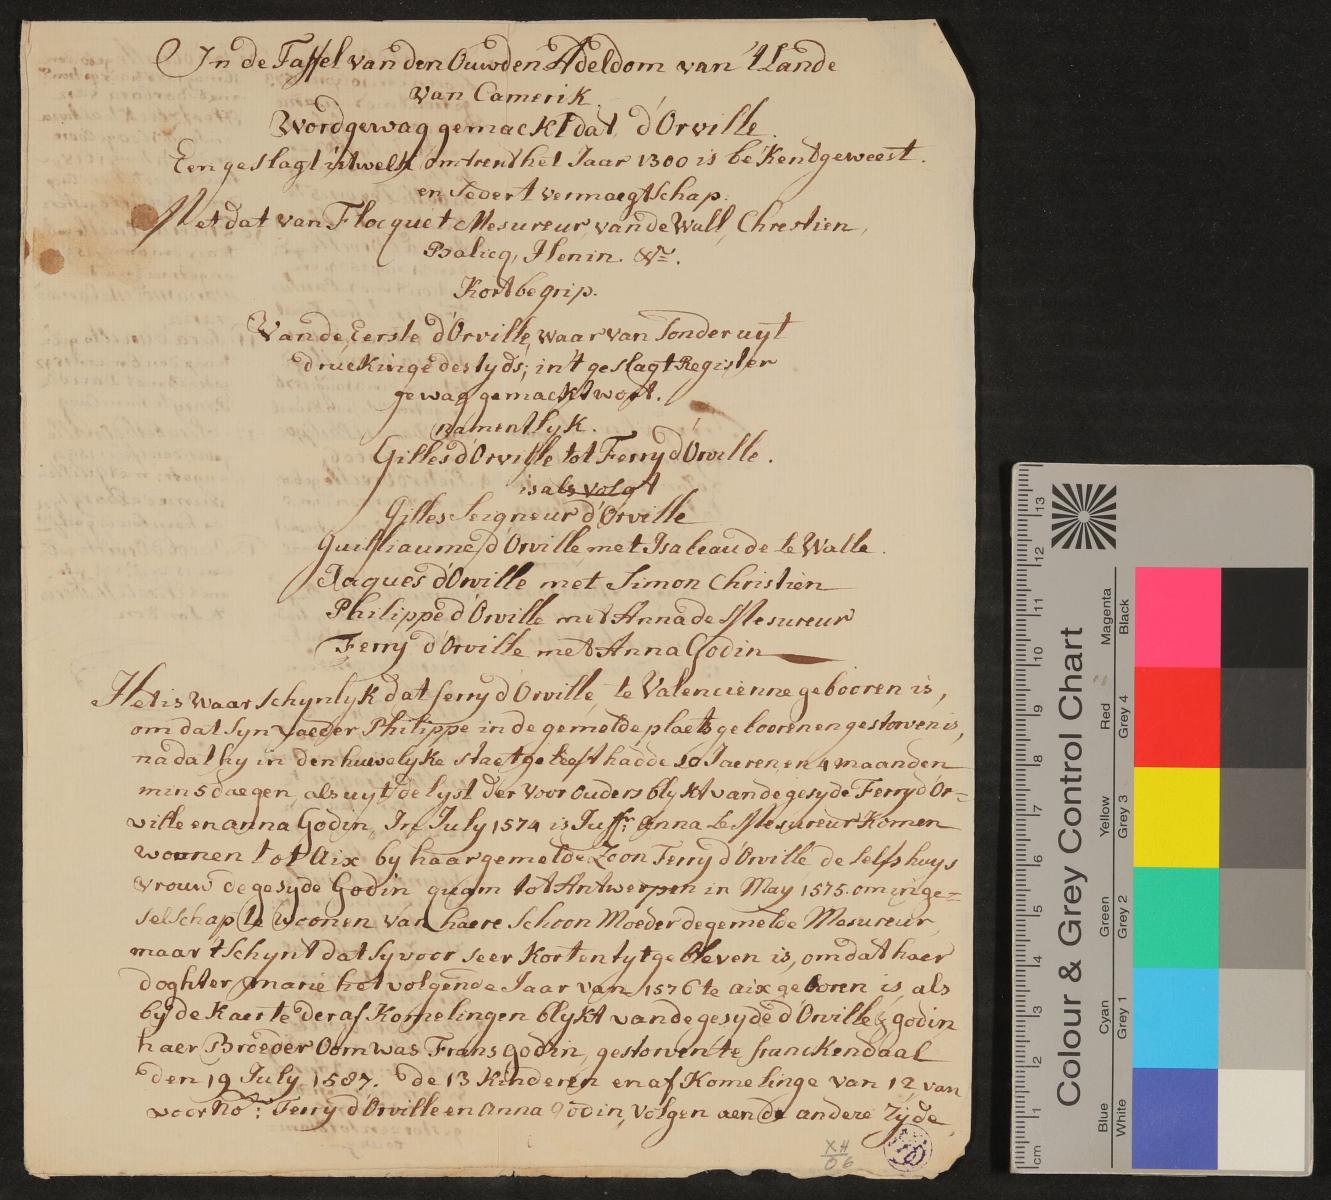 In de Taffel van den Ouwden Adeldom van 't Lande
van Camerik.
Word gewag gemackt dat, d'Orville.
Een geslagt uit welk omtrent het Jaar 1300 is bekent geweest.
en sedert vermaegtschap.
Met dat van Flocquet Mesureur, van de Wall, Chrestien,
Balicq, Henin. &c.
Kort begrip.
Van de Eerste d'Orville, waar van sonder uyt
druckinge des tyds; in 't geslagt Register
gewag gemackt wort.
namentlyk.
Gilles d'Orville tot Ferry d'Orville.
is als volgt
Gilles Seigneur d'Orville
Guilliaume d'Orville met Isabeau de le Walle.
Jaques d'Orville met Simon Christien
Philippe d'Orville met Anna de Mesureur
Ferry d'Orville met Anna Godin
Het is waarschynlyk dat ferry d'Orville, te Valencienne gebooren is,
om dat syn vaeder Philippe in de gemelde plaets gebooren en gestorven is,
na dat hy in den huwelyke staet geleeft hadde Jaeren, en 4 maanden
min 5 daegen, als uyt de lyst der voor ouders blykt van de gesyde Ferry d'Or=
ville en anna Godin, In July 1574 is Juffr. anna Le Mesureur komen
woonen tot Aix by haar gemelde Zoon Ferry d'Orville de selfs huys
vrouw de gesyde Godin quam tot Antwerpen in May 1575. om in ge=
selschap te woonen van haere Schoon Moeder de gemelde Mesureur,
maar 't schynt dat sy voor seer korten tyt gebleven is, om dat haer
doghter, marie het volgende Jaar van 1576 te aix geboren is, als
by de Kaerte der afkomelingen blykt van de gesyde d'Orville & godin
haer Broeder Oom was Frans godin, gestorven te franckendaal
den 19 July 1587. de 13 kinderen en afkomelinge van 12 van
voor No: Ferry d'Orville en anna godin, volgen aen de andere Zyde,
XH
06
Colour & Grey Control Chart
Blue Cyan Green Yellow Red Magenta
White Grey 1 Grey 2 Grey 3 Grey 4 Black
cm 1 2 3 4 5 6 7 8 9 10 11 12 13